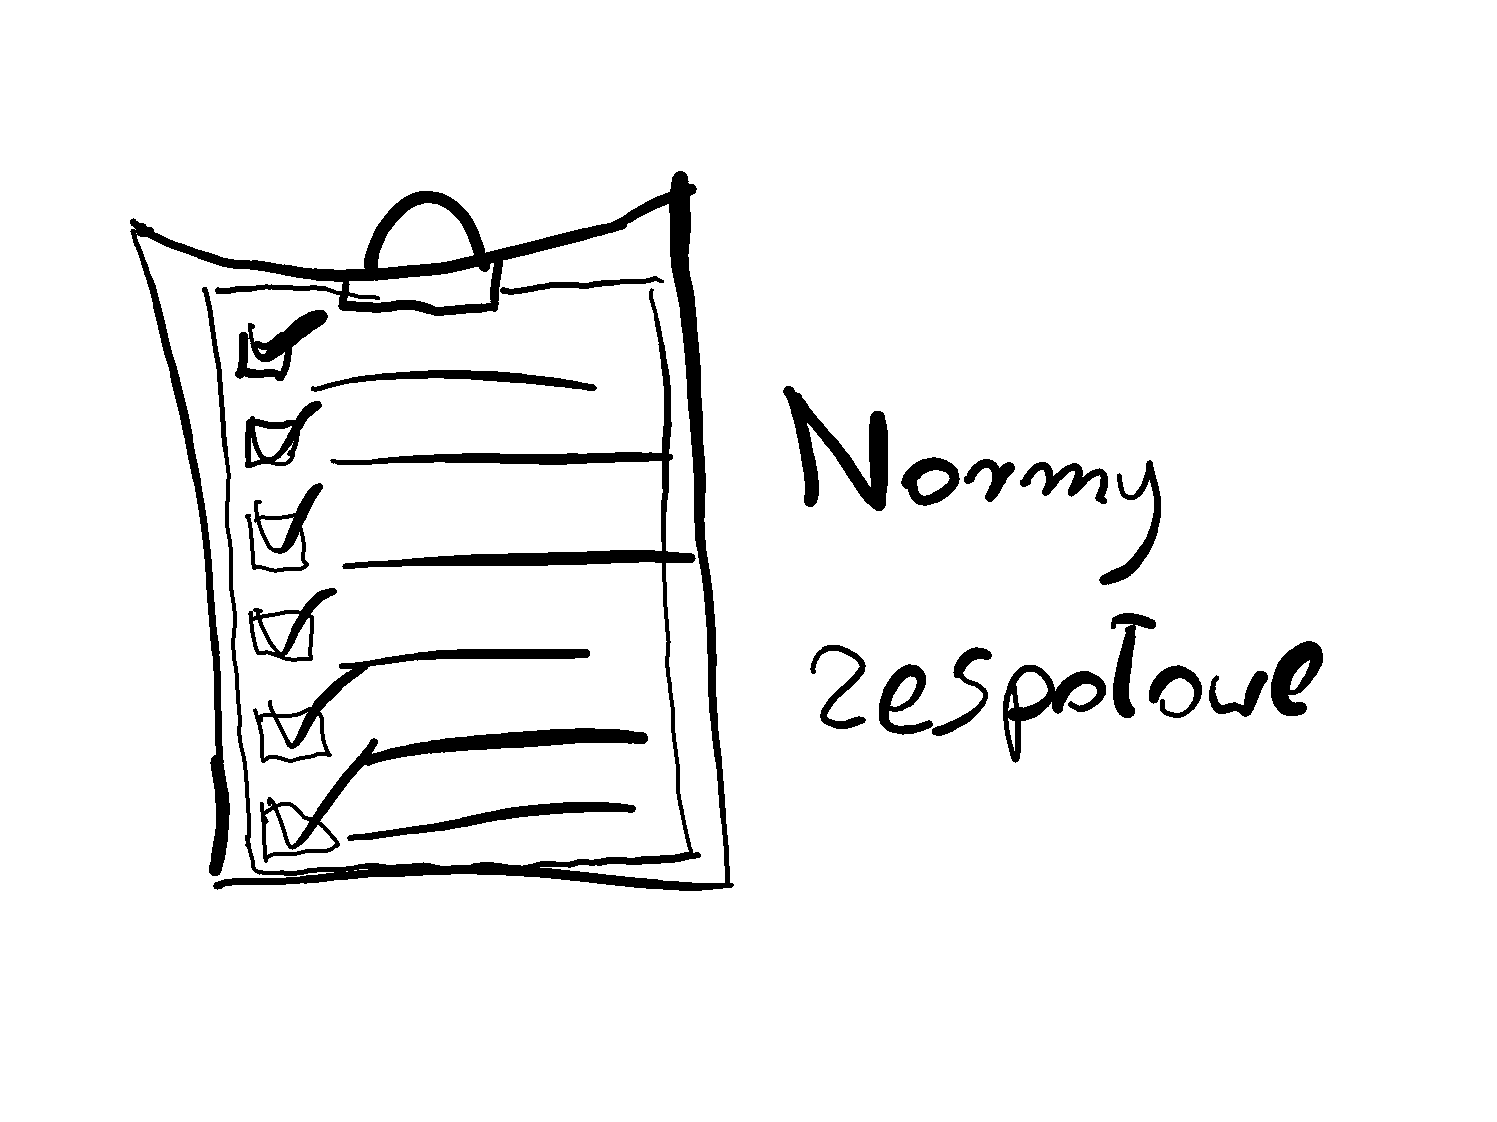 Normy
zespołowe